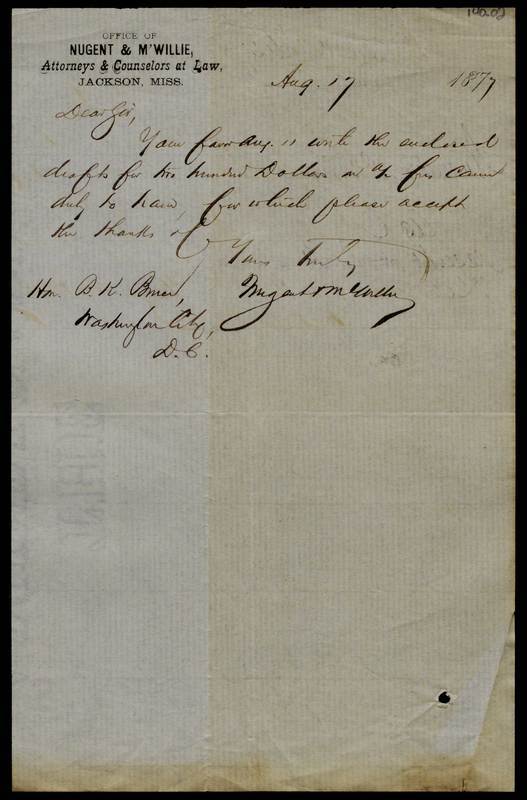 OFFICE OF
NUGENT & McWILLIE,
Attorneys & Counselors at Law,
JACKSON, MISS.
Aug. 17 1877
Dear Sir,
Your favor Aug. 11 with the enclosed
drafts for two hundred Dollars on a/c fees came
duly to hand, for which please accept
the thanks of
Yours truly
Nugent & McWillie
Hon. B. K. Bruce,
Washington City,
D.C.